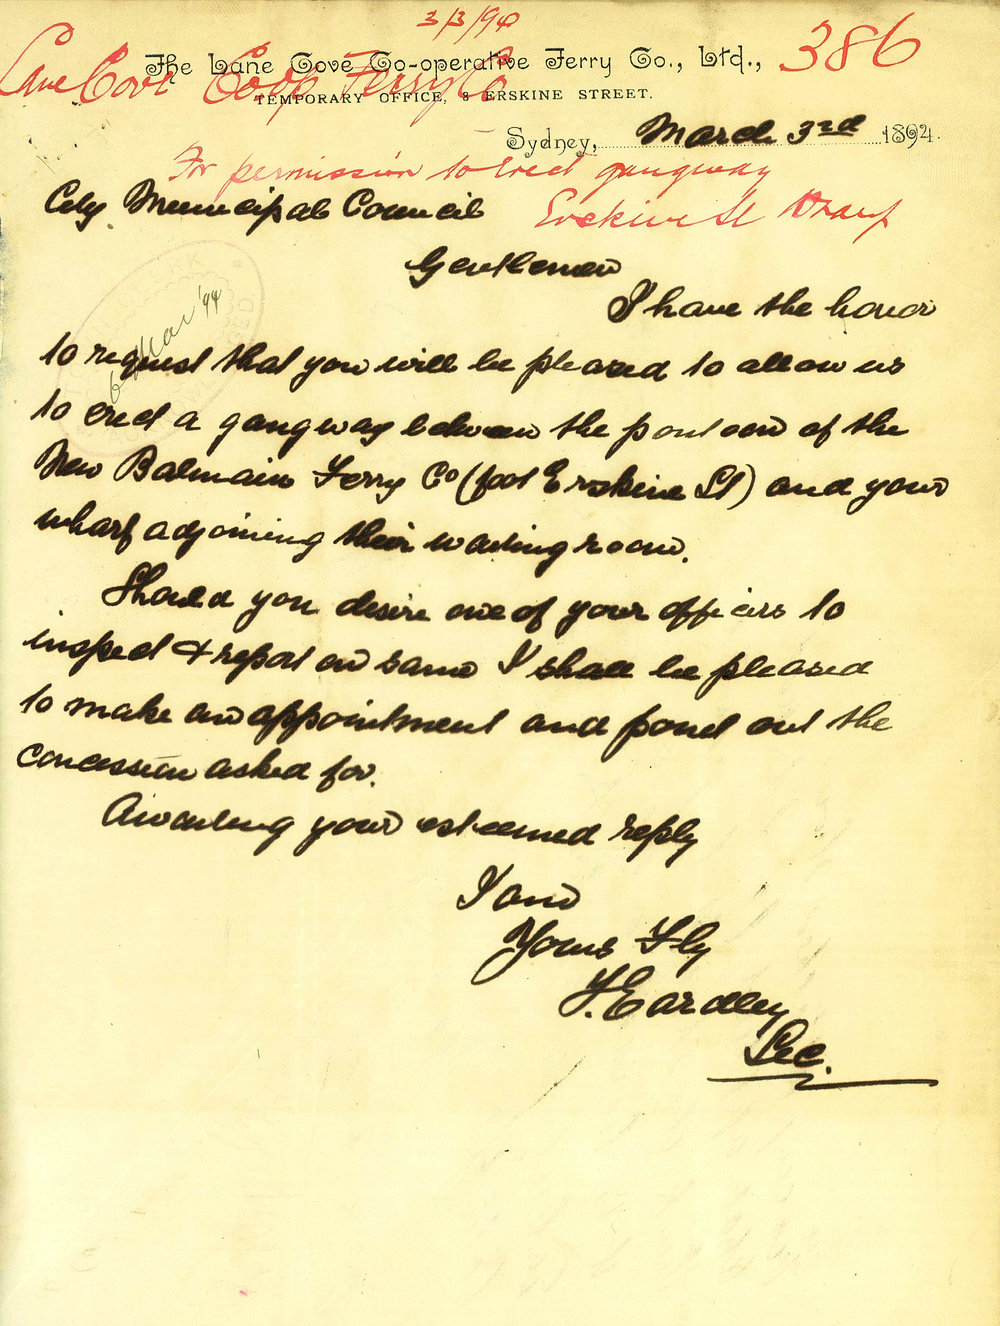 3/3/94
The Lane Cove Co-operative Ferry Co., Ltd.,
386
Lane Cove Coop Ferry Co
TEMPORARY OFFICE, 8 ERSKINE STREET.
Sydney, March 3rd 1894.
For permission to erect gangway
Erskine St Wharf
City Municipal Council
Gentlemen
I have the honor
6 Mar '94
to request that you will be pleased to allow us
to erect a gangway between the pontoon of the
New Balmain Ferry Co (foot Erskine St) and your
wharf adjoining their waiting room.
Should you desire one of your officers to
inspect & report on same I shall be pleased
to make an appointment and point out the
concession asked for.
Awaiting your esteemed reply
I am
Yours Fly
F. Eardley
Sec.